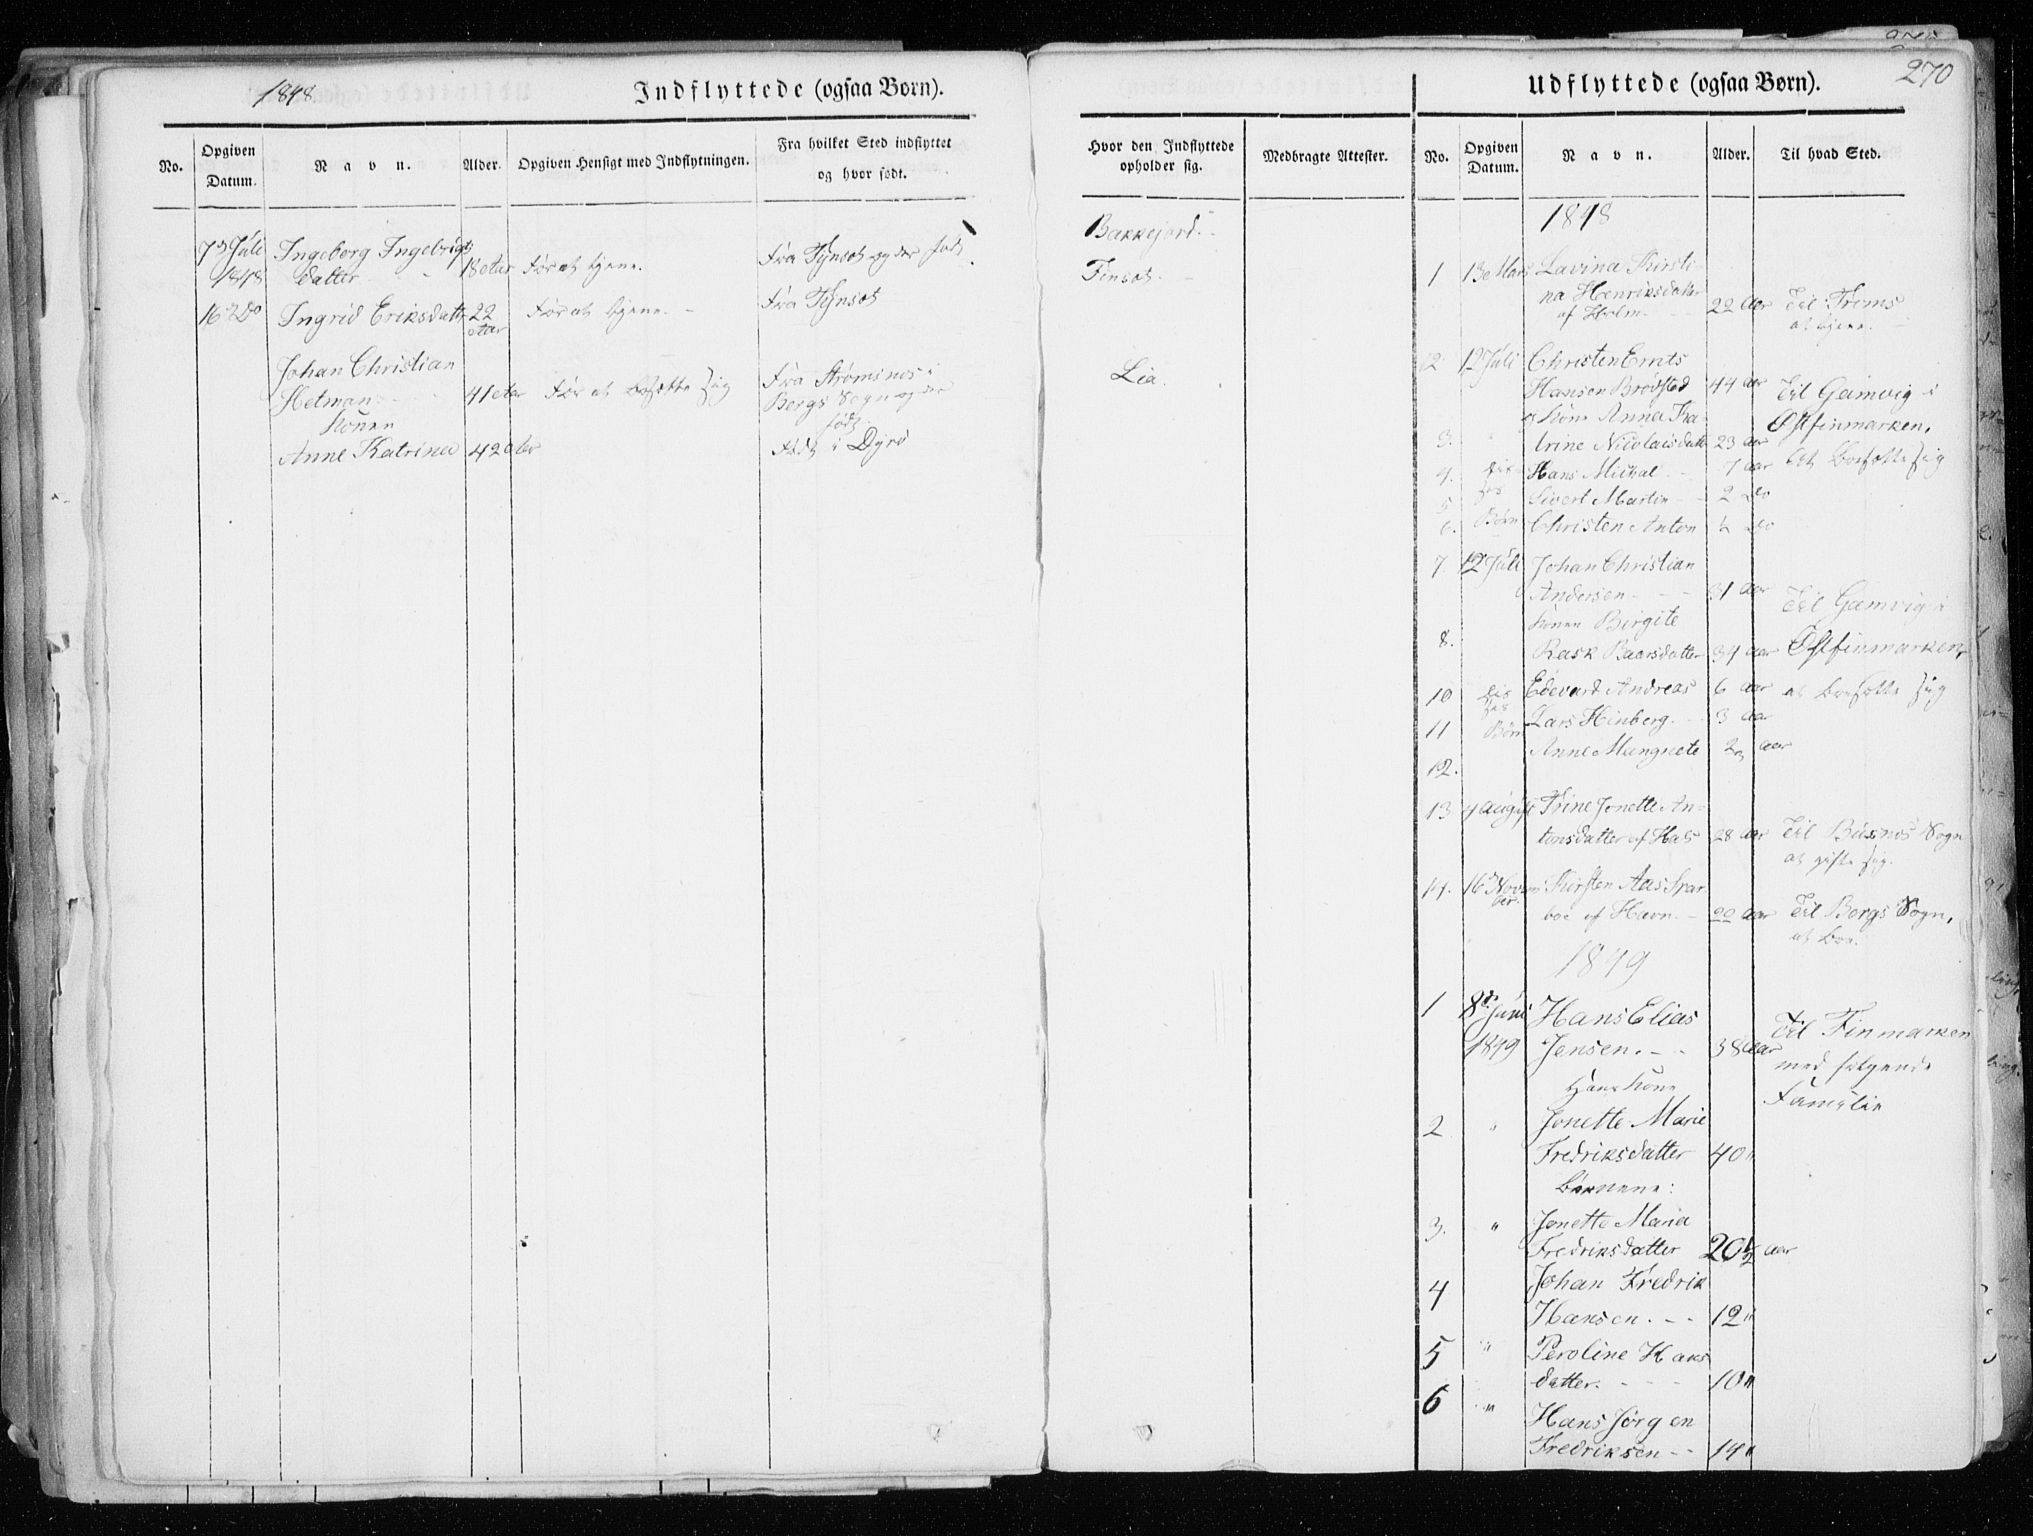 1848.
Indflyttede (ogsaa Børn).
No.
Opgiven Datum.
Navn.
Alder.
Opgiven Hensigt med Indflytningen.
Fra hvilket Sted indflyttet
og hvor født.
7d Juli Ingeborg Ingebrigts
1848 datter 18 Aar For at tjene. Fra Tynset og der født
16d Do Ingrid Eriksdatter 22 Aar For at tjene. Fra Tynset
Johan Christian
Hetman 41 Aar For at bosætte sig Fra
Bergs Sogn og der født
Konen
Anne Katrina 42 Aar Født i Dyrø
270
Udflyttede (ogsaa Børn).
Hvor den Indflyttede
opholder sig.
Medbragte Attester.
No.
Opgiven Datum.
Navn.
Alder.
Til hvad Sted.
Bakkejord.
Finset.
Lia.
1848
1 13 Mars Lavina Kirsti-
na Henriksdatter
af Holm. 22 Aar Til Troms
at tjene.
2 12 Juli Christen Ernts
Hansen Brodsted 44 Aar Til Gamvig i
og Kone Anna Ka- Østfinmarken,
3. " trine Nicolaisdatter 23 Aar
4. Hans Mickal 7 Aar at bosætte sig
5 Sivert Martin 2 Do
6. Børn Christen Anton ½ Do
7. 12 Juli Johan Christian
Andersen 31 Aar Til Gamvig i
Konen Birgite
8. Rask Baarsdatter 34 Aar Østfinmarken,
10 Edevard Andreas 6 Aar at bosætte sig
11 Børn Lars Hinberg. 3 Aar
12. Anne Mangrete Aar
13 4 August Trine Jonette An=
tonsdatter af Hals 28 Aar Til Sogn
at gifte sig.
14. 16d Novem ber. Kirsten Aas Spar
boe af Havn. 22 Aar Til Bergs Sogn,
at boe.
1849
1 8de Juni Hans Elias
1849 Jensen. 38 Aar Til Finmarken
med følgende
Hans Kone Familie
2 " Jonette Marie
Fredriksdatter 40 "
Børnene:
3. " Jonette Maria
Fredriksdatter 20½ Aar
4 Johan Fredrik
Hansen. 12 "
5 " Peroline Hans
datter. 10 "
6 " Hans Jørgen
Fredriksen 14 "